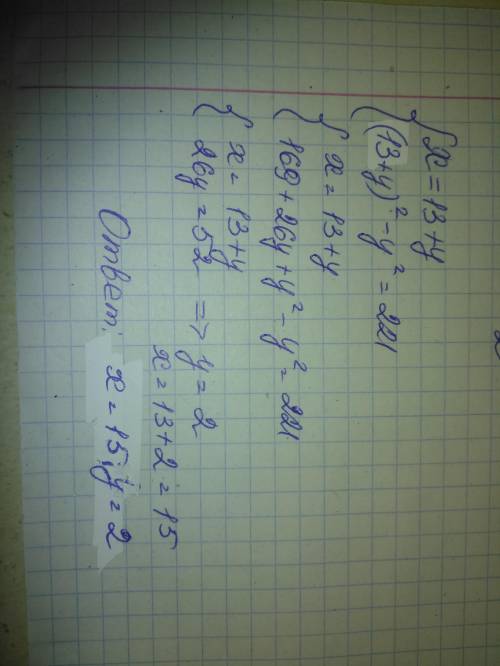 { x = 13 + y
{ (13+y)² - y² = 221
{ x = 13 + y
{ 169 + 26y + y² - y² = 221
{ x = 13 + y
{ 26y = 52 => y = 2
x = 13 + 2 = 15
Ответ: x = 15; y = 2